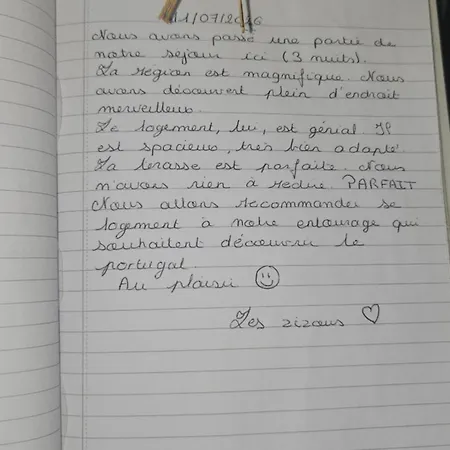 11/07/2026
Nous avons passé une partie de
notre sejour ici (3 nuits).
La région est magnifique. Nous
avons découvert plein d'endrait
merveilleux.
Le logement, lui, est génial. Il
est spacieux, très bien adapté.
La terasse est parfaite. Nous
n'avons rien à redire. PARFAIT
Nous allons recommander se
logement à notre entourage qui
souhaitent découvrir le
portugal.
Au plaisir ☺
Les zizous ♡